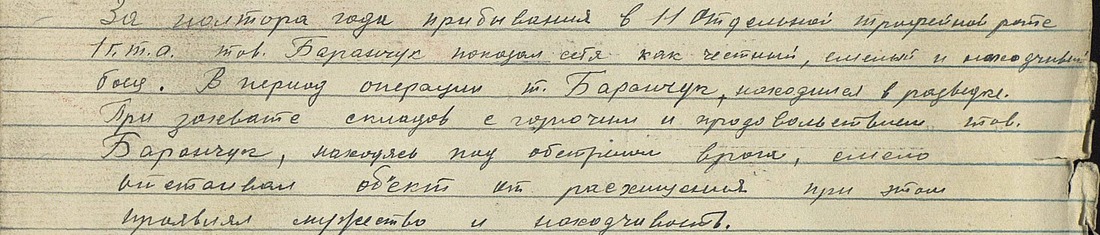 За полтора года прибывания в 11 Отдельной трофейной роте
1 г.т.а. тов. Баранчук показал себя как честный, смелый и находчивый
боец. В период операции т. Баранчук, находился в разведке.
При захвате складов с горючим и продовольствием тов.
Баранчук, находясь под обстрелом врага, смело
отстаивал объект от расхищения при этом
проявлял мужество и находчивость.